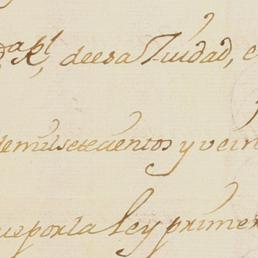 R.l, de esa Ziudad, e
demil setecientos y vein
que por la ley primer